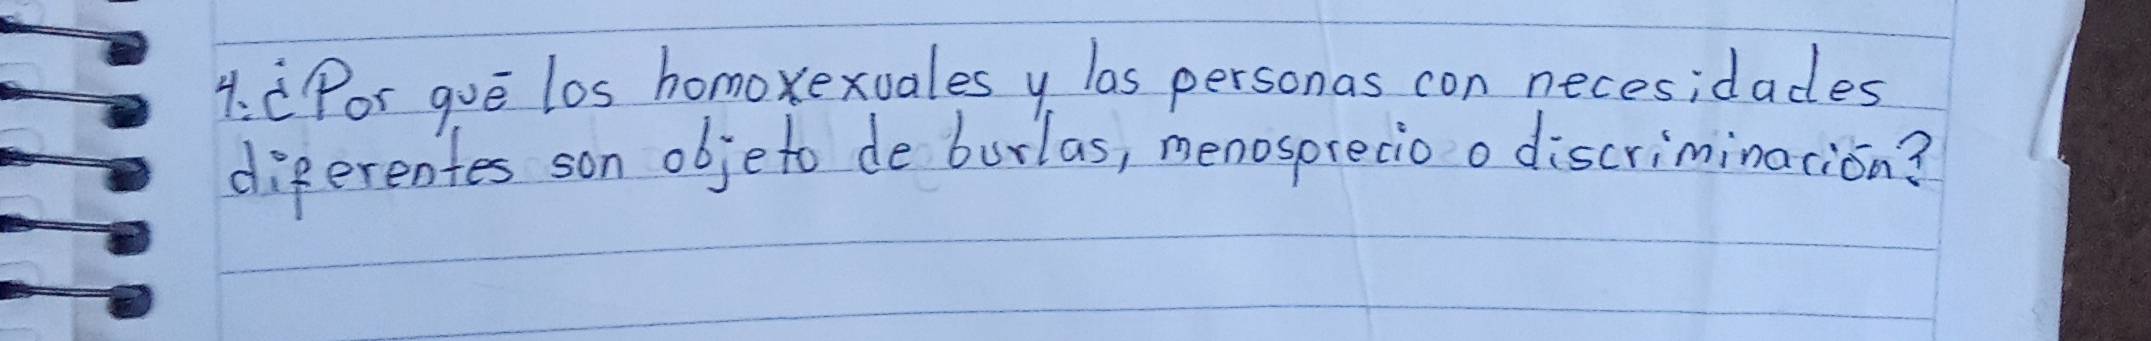 4. ¿Por qué los homoxexuales y las personas con necesidades
diferentes son objeto de burlas, menosprecio o discriminación?